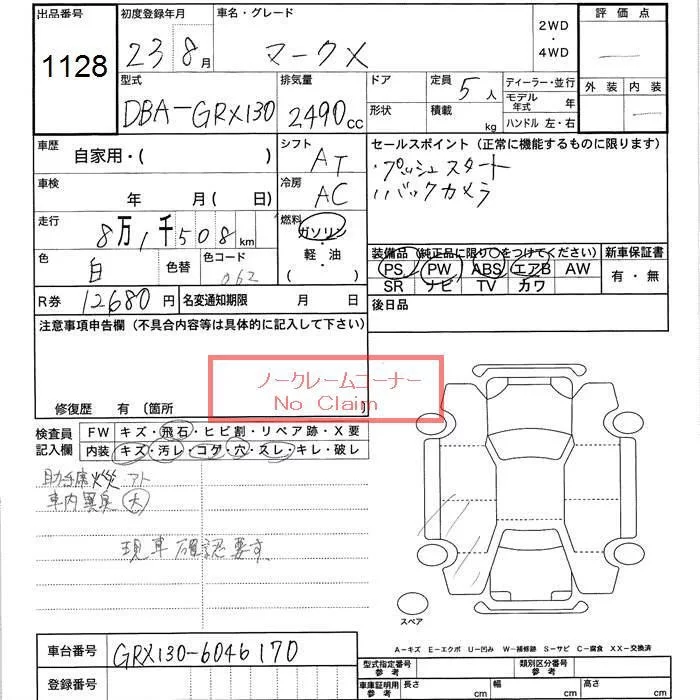 出品番号 初度登録年月 車名・グレード 2WD ・ 4WD 評価点
1128 23 8月 マークX
外装 内装
型式 排気量 ドア 定員 5人 ディーラー・並行
DBA-GRX130 2490cc 形状 積載 kg モデル年式 年
ハンドル 左・右
車歴 自家用・( ) シフト AT セールスポイント(正常に機能するものに限ります)
・プッシュスタート
車検 年 月( 日) 冷房 AC バックカメラ
走行 8万1千508km 燃料 ガソリン・軽油・( )
色 白 色替 色コード 062
装備品(純正品に限り○をつけてください) 新車保証書
PS PW ABS エアB AW 有・無
SR ナビ TV カワ
R券 12680円 名変通知期限 月 日 後日品
注意事項申告欄(不具合内容等は具体的に記入して下さい)
ノークレームコーナー
No Claim
修復歴 有〔箇所 〕
検査員記入欄 FW キズ・飛石・ヒビ割・リペア跡・X要
内装 キズ・汚レ・コゲ・穴・スレ・キレ・破レ
助手席火災アト
車内異臭 大
現車確認要す。
スペア
A-キズ E-エクボ U-凹み W-補修跡 S-サビ C-腐食 XX-交換済
車台番号 GRX130-6046170
登録番号
型式指定番号 参考 類別区分番号 参考
車庫証明用 参考 長さ cm 幅 cm 高さ cm